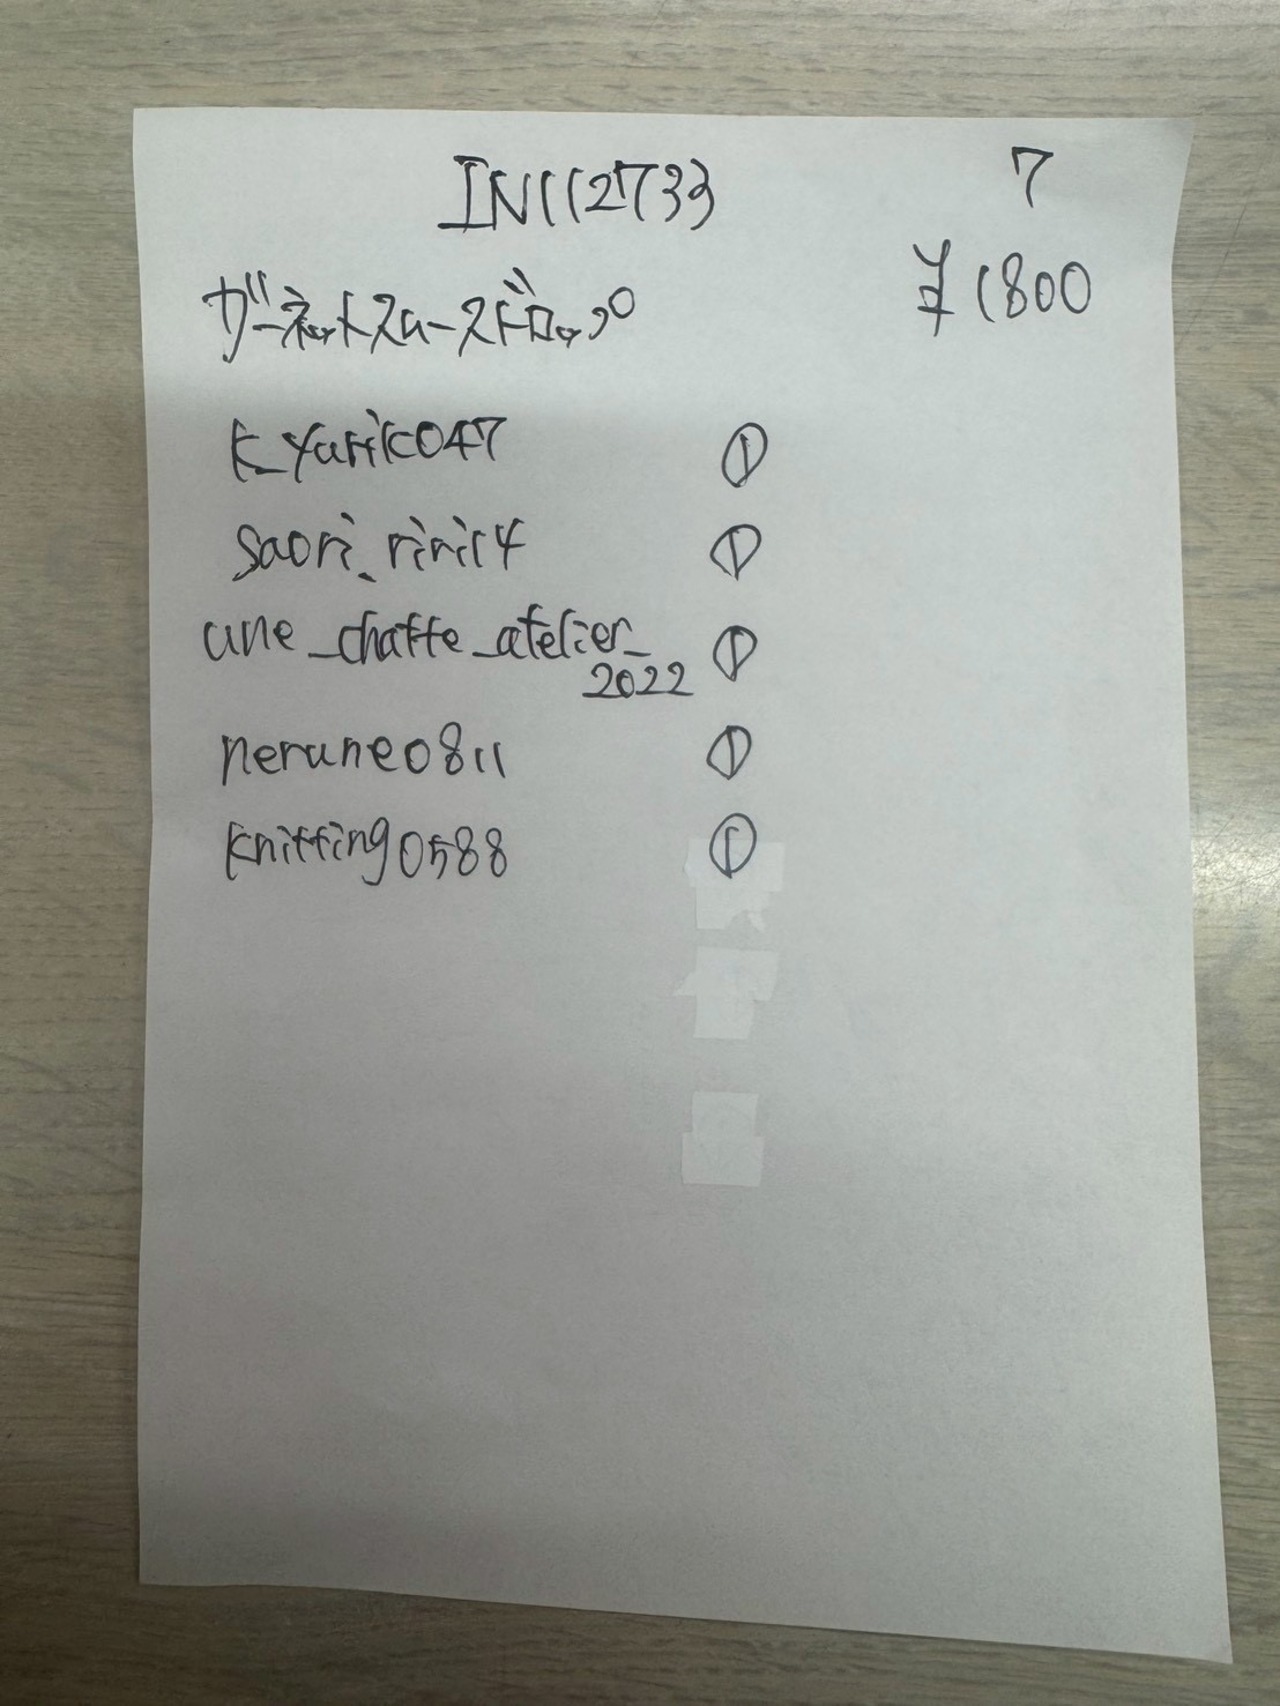 IN112733 7
ガーネットスムースドロップ ¥1800
k_yuriko47 ①
saori_riri14 ①
une_chatte_atelier_ ①
2022
nerune0811 ①
knitting0588 ①